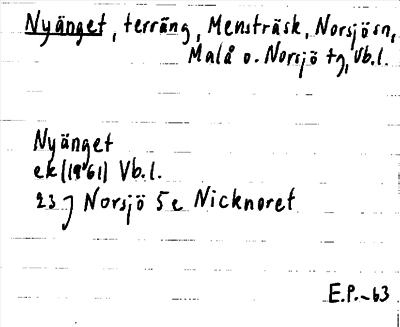 Nyänget, terräng, Mensträsk, Norsjö sn,
Malå o. Norsjö tg, Vb.l.
Nyänget
ek (1961) Vb.l.
23 J Norsjö 5 e Nicknoret
E.P.-63